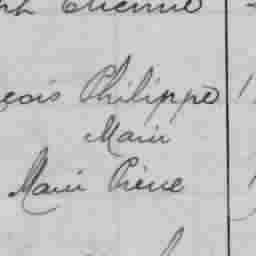 Etienne
çois Philippe
Marie
Marie Pierre